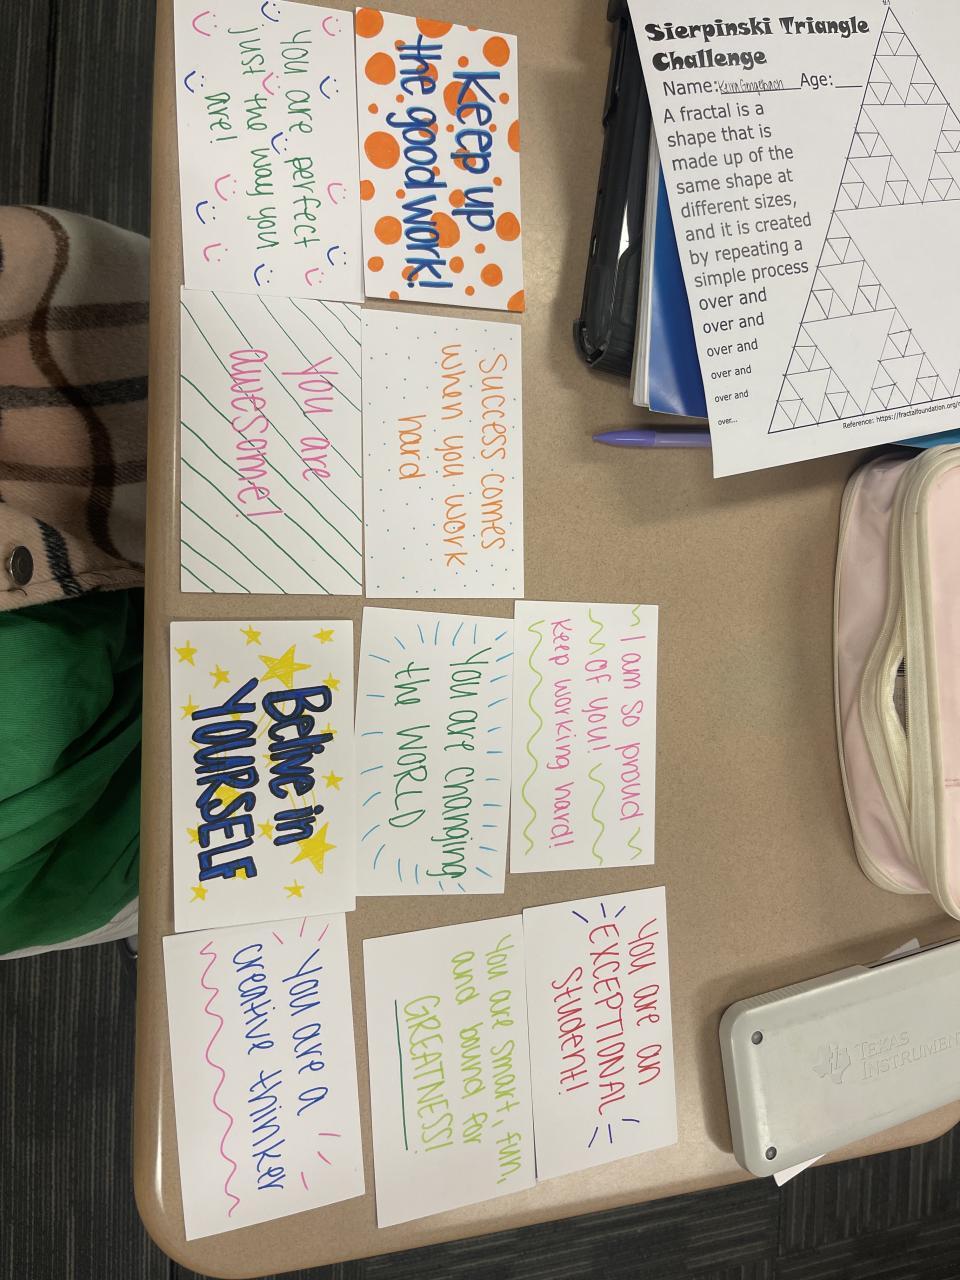 Keep up
the good work!
you are perfect
just the way you
are!
Success comes
when you work
hard
you are
awesome!
I am so proud
of you!
Keep working hard!
You are changing
the WORLD
Belive in
YOURSELF
you are an
EXCEPTIONAL
student!
you are smart, fun,
and bound for
GREATNESS!
you are a
creative thinker
Sierpinski Triangle
Challenge
Name: Age:
A fractal is a
shape that is
made up of the
same shape at
different sizes,
and it is created
by repeating a
simple process
over and
over and
over and
over and
over and
over...
Reference: https://fractalfoundation.org/
TEXAS
INSTRUMENTS